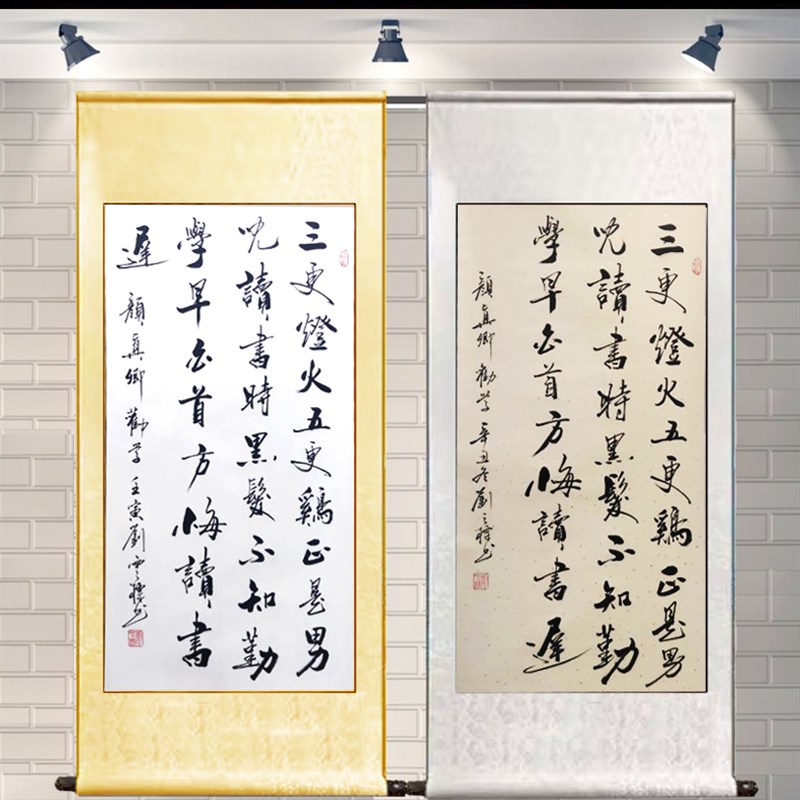 三更燈火五更鷄正是男
兒讀書時黑髮不知勤
學早白首方悔讀書
遲
顏真卿勸學壬寅劉雲書
三更燈火五更鷄正是男
兒讀書時黑髮不知勤
學早白首方悔讀書遲
顏真卿勸學辛丑冬劉書